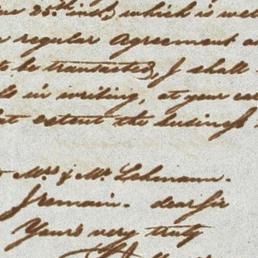 kind, which is we
regular Agreement a
be transacted, I shall
in writing, at your ea
extent the business
Mrs & Mr Lehmann.
I remain. dear Sir
Yours very truly